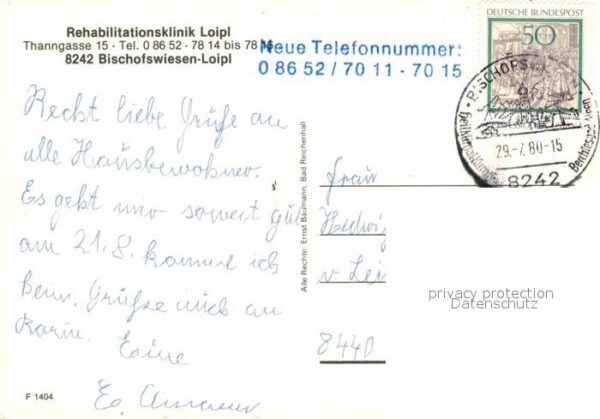 Rehabilitationsklinik Loipl
Thanngasse 15 - Tel. 0 86 52 - 78 14 bis 78 16
8242 Bischofswiesen-Loipl
Neue Telefonnummer:
0 86 52 / 70 11 - 70 15
DEUTSCHE BUNDESPOST
50
BISCHOFSWIESEN
29.-7.80-15
8242
Berchtesgadener
Recht liebe Grüße an
alle Hausbewohner.
Es geht mir soweit gut
am 21.8. komme ich
heim. Grüße auch an
Karin. Eine
E.
Alle Rechte: Ernst Baumann, Bad Reichenhall
Frau
Hedwig
v
8440
privacy protection
Datenschutz
F 1404